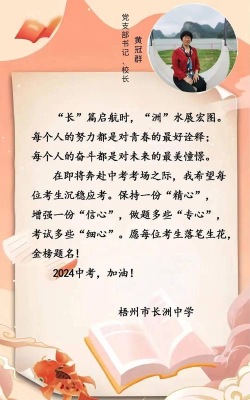 党支部书记、校长
黄冠群
“长”篇启航时，“洲”水展宏图。
每个人的努力都是对青春的最好诠释；
每个人的奋斗都是对未来的最美憧憬。
在即将奔赴中考考场之际，我希望每
位考生沉稳应考。保持一份“精心”，
增强一份“信心”，做题多些“专心”，
考试多些“细心”。愿每位考生落笔生花，
金榜题名！
2024中考，加油！
梧州市长洲中学